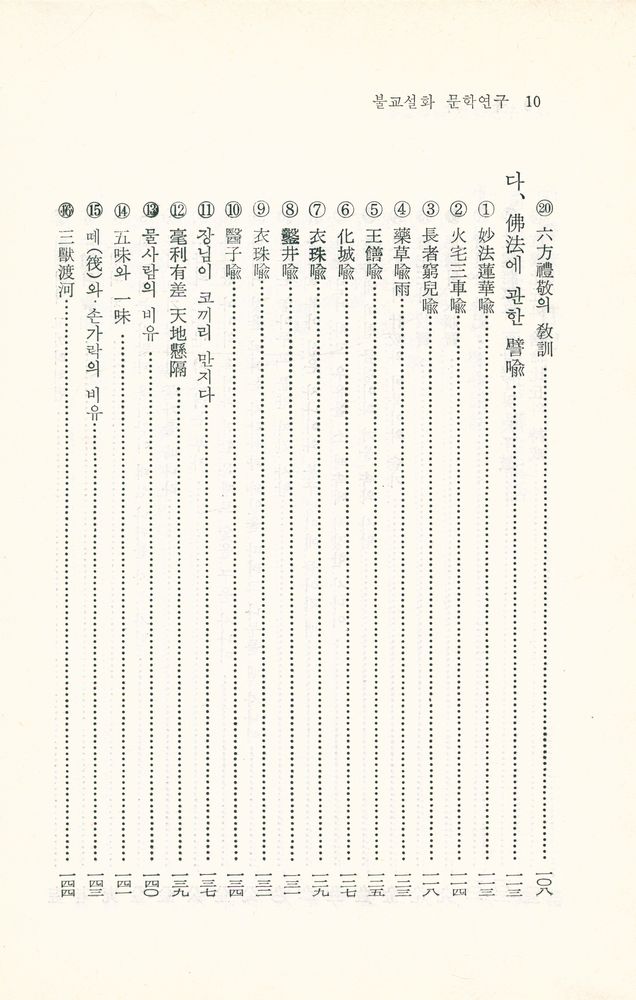 불교설화 문학연구 10
⑳ 六方禮敬의 敎訓 一〇八
다、佛法에 관한 譬喩 一一三
① 妙法蓮華喩 一一三
② 火宅三車喩 一一四
③ 長者窮兒喩 一一八
④ 藥草喩雨 一二三
⑤ 王饍喩 一二五
⑥ 化城喩 一二七
⑦ 衣珠喩 一二九
⑧ 鑿井喩 一三一
⑨ 衣珠喩 一三二
⑩ 醫子喩 一三四
⑪ 장님이 코끼리 만지다 一三七
⑫ 毫利有差 天地懸隔 一三九
⑬ 물사람의 비유 一四〇
⑭ 五味와 一味 一四一
⑮ 떼(筏)와 손가락의 비유 一四三
⑯ 三獸渡河 一四四